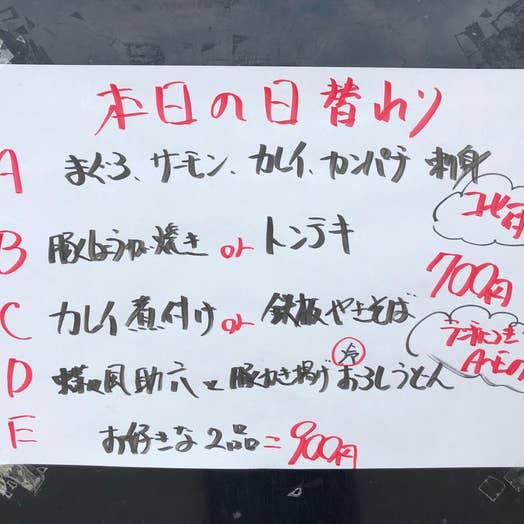 本日の日替わり
A まぐろ、サーモン、カレイ、カンパチ 刺身
コーヒー付
B 豚しょうが焼き or トンテキ
700円
C カレイ煮付け or 鉄板やきそば
D 助六と豚かき揚げ 冷 おろしうどん
E お好きな2品=900円